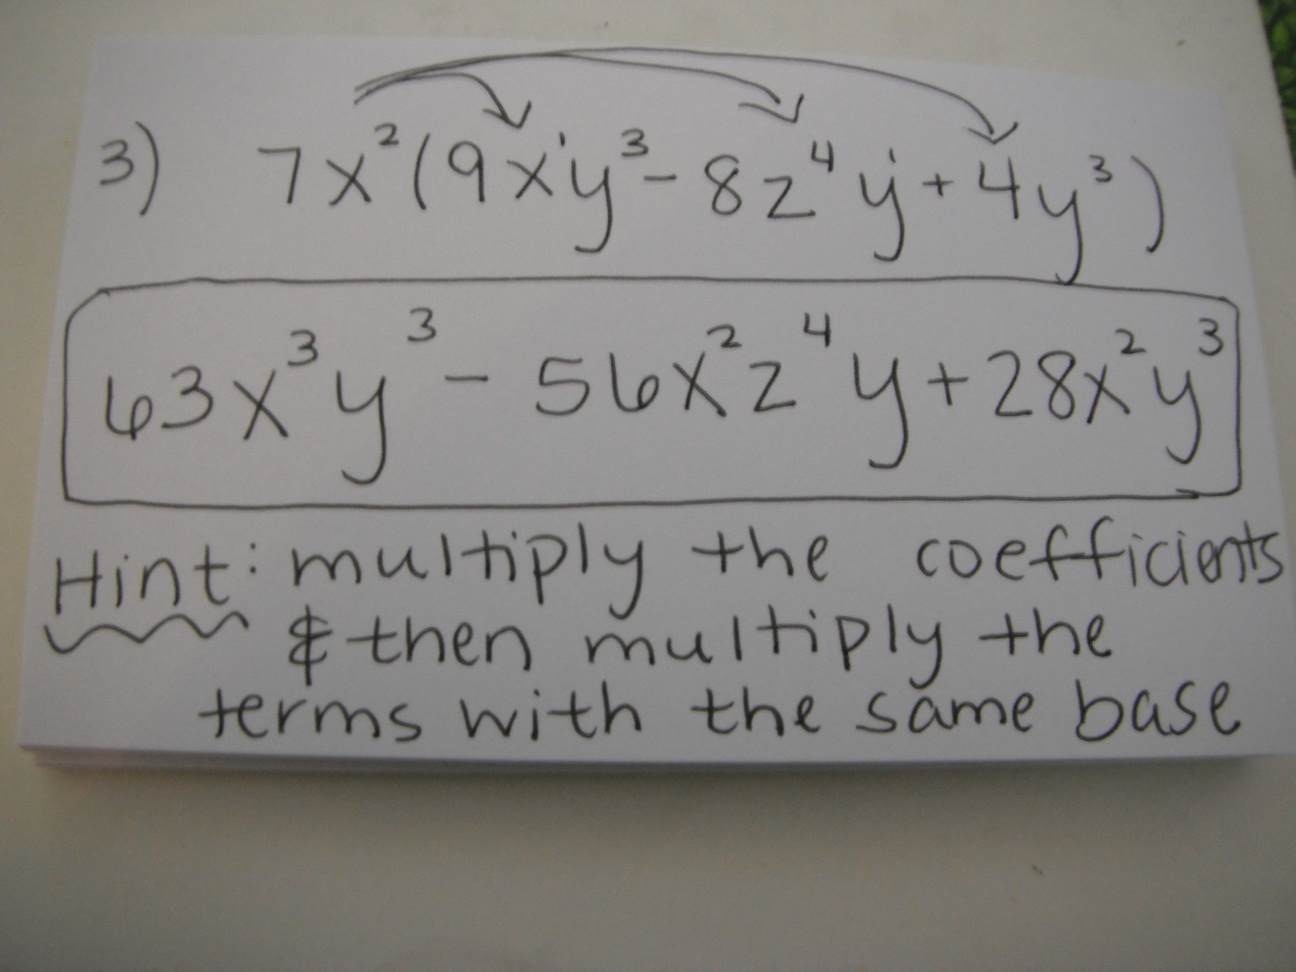 3) 7x²(9x¹y³ - 8z⁴y¹ + 4y³)
63x³y³ - 56x²z⁴y + 28x²y³
Hint: multiply the coefficients
& then multiply the
terms with the same base